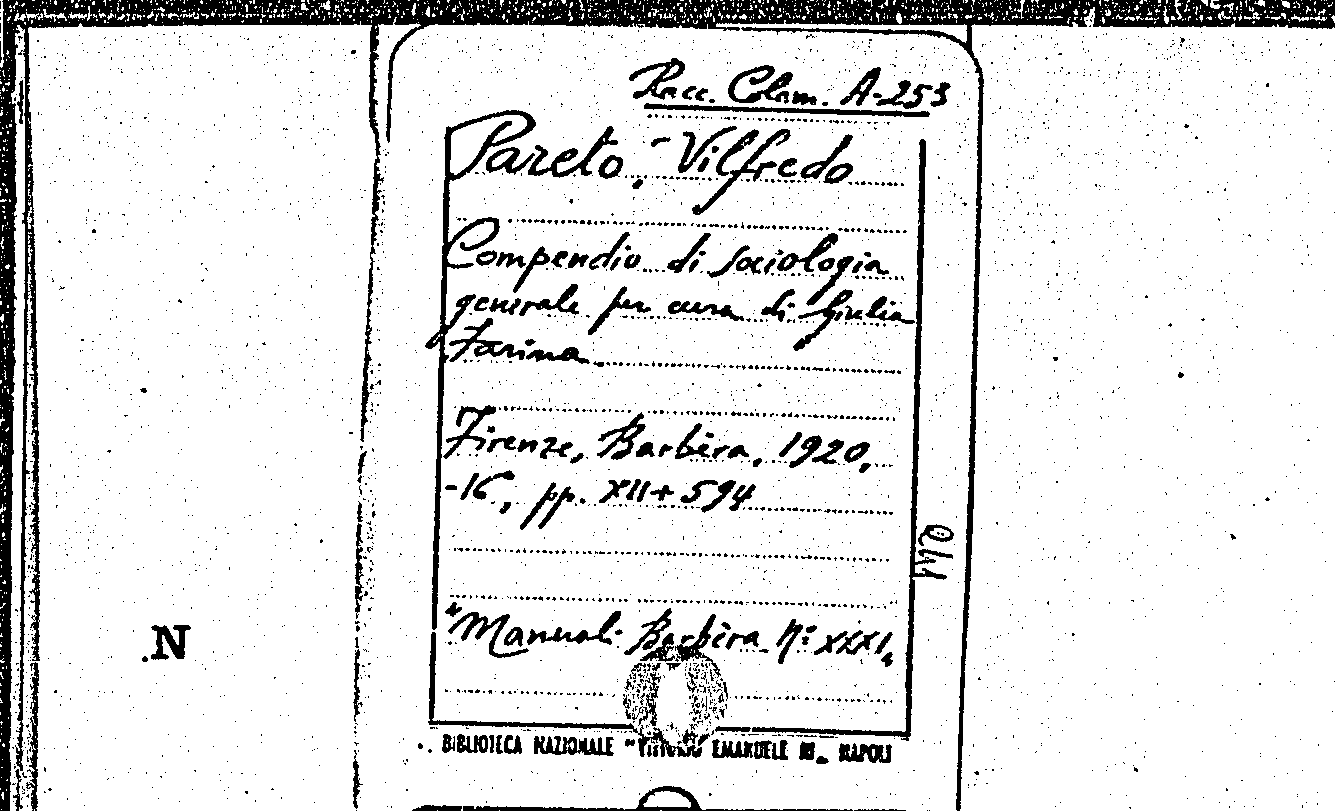 Racc. Colam. A-253
Pareto, Vilfredo
Compendio di sociologia
generale per cura di Giulia
Farina
Firenze, Barbèra, 1920,
-16°, pp. XII+594
"Manuali Barbèra N: XXXI"
N
BIBLIOTECA NAZIONALE "VITTORIO EMANUELE III" NAPOLI